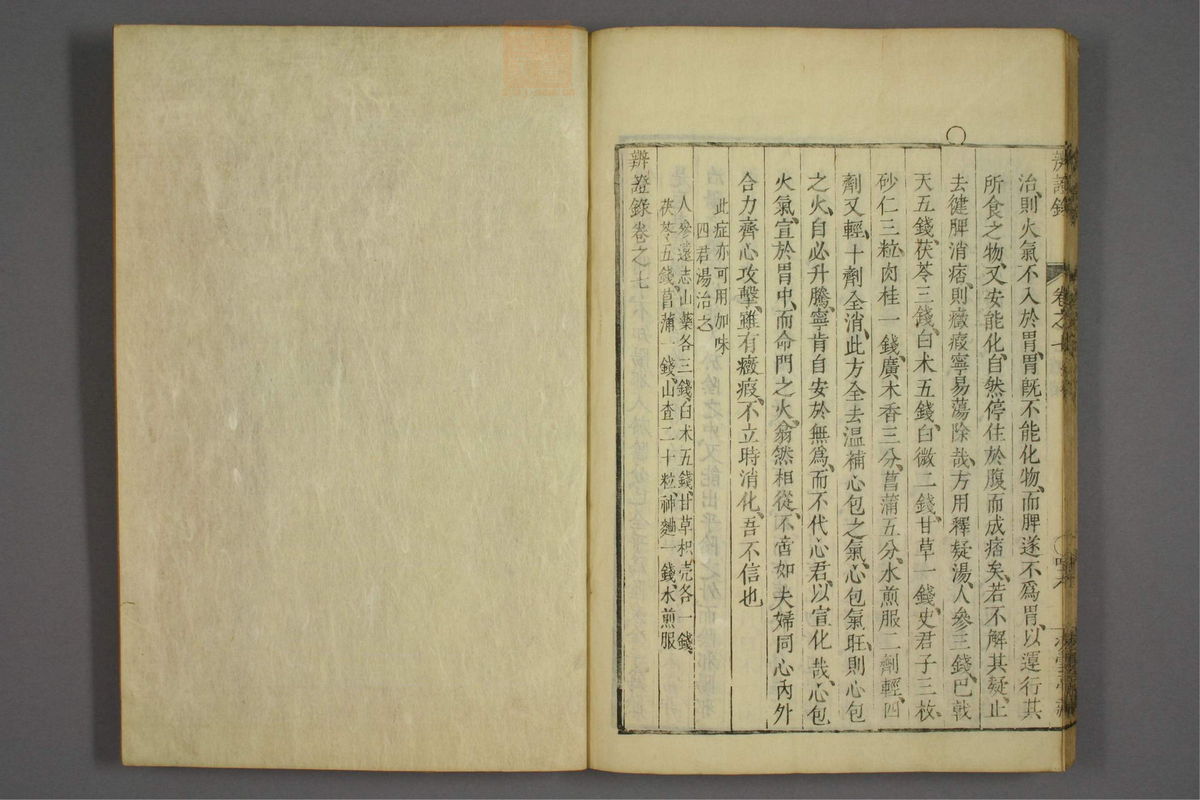 辨證錄 卷之七
治、則火氣不入於胃、胃旣不能化物、而脾遂不爲胃、以運行其
所食之物、又安能化、自然停住於腹而成痞矣、若不解其疑、止
去健脾消痞、則癥瘕寧易蕩除哉、方用釋疑湯、人參三錢、巴戟
天五錢、茯苓三錢、白术五錢、白薇二錢、甘草一錢、史君子三枚、
砂仁三粒、肉桂一錢、廣木香三分、菖蒲五分、水煎服二劑輕、四
劑又輕、十劑全消、此方全去温補心包之氣、心包氣旺、則心包
之火、自必升騰、寧肯自安於無爲、而不代心君、以宣化哉、心包
火氣、宣於胃中、而命門之火、翕然相從、不啻如夫婦同心、內外
合力齊心攻擊、雖有癥瘕、不立時消化、吾不信也
此症亦可用加味
四君湯治之
人參遠志山藥各三錢、白术五錢、甘草枳壳各一錢、
茯苓五錢、菖蒲一錢、山查二十粒、神麯一錢、水煎服
辨證錄卷之七